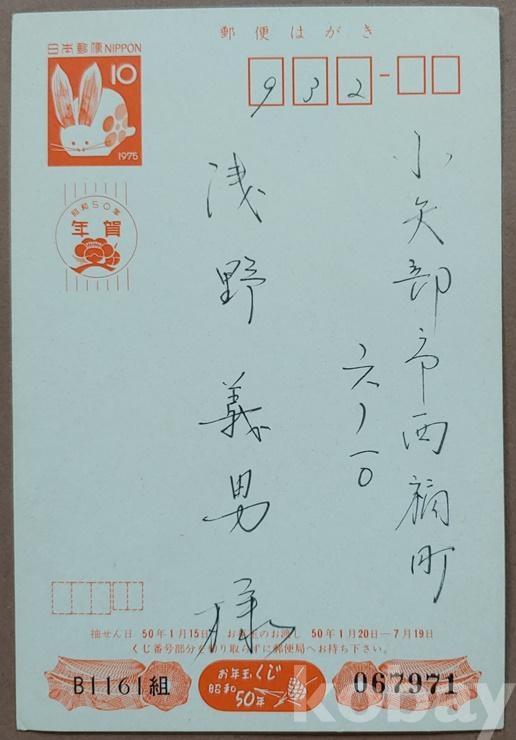 郵便はがき
日本郵便 NIPPON
10
1975
昭和50年
年賀
932
小矢部市西福町
六ノ一〇
浅野義男様
抽せん日 50年1月15日 お年玉のお渡し 50年1月20日—7月19日
くじ番号部分を切り取らずに郵便局へお持ち下さい。
B1161組
お年玉くじ
昭和
50年
067971
kobay